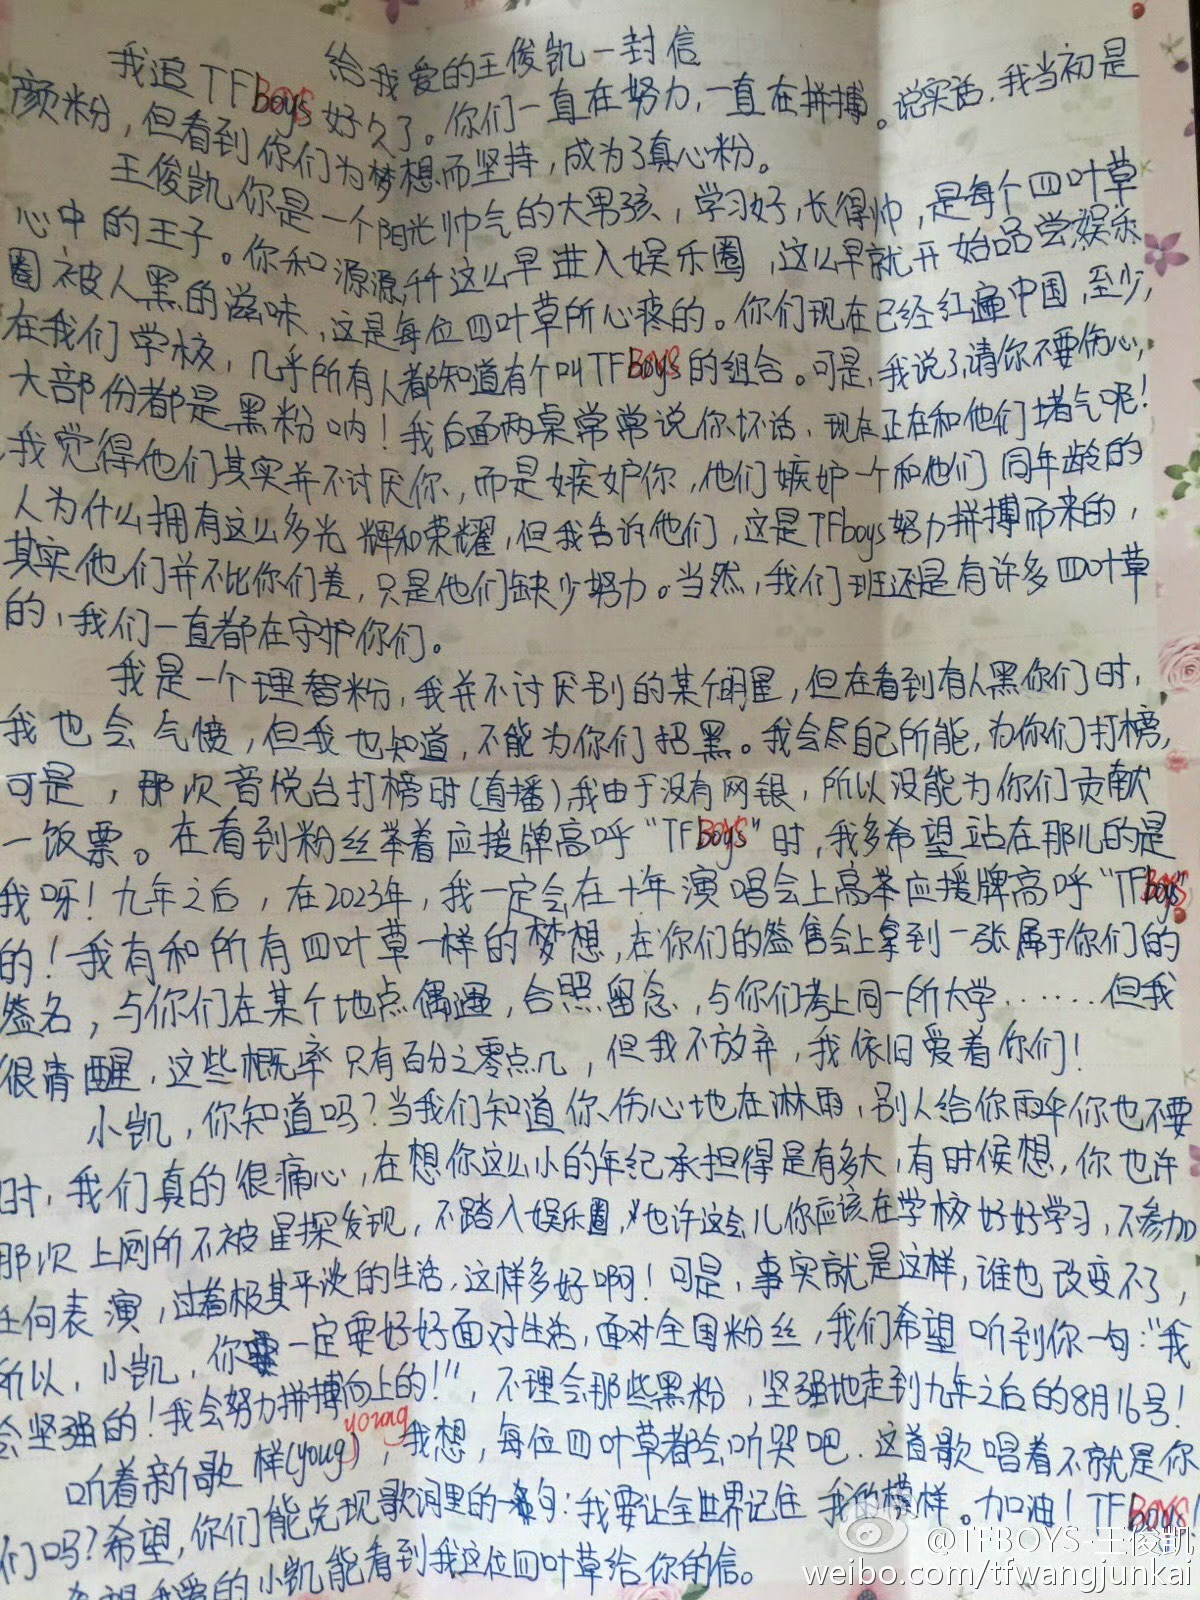 给我爱的王俊凯一封信
我追TFboys好久了。你们一直在努力,一直在拼搏。说实话,我当初是
颜粉,但看到你们为梦想而坚持,成为了真心粉。
王俊凯你是一个阳光帅气的大男孩,学习好,长得帅,是每个四叶草
心中的王子。你和源源,千千这么早进入娱乐圈,这么早就开始品尝娱乐
圈被人黑的滋味,这是每位四叶草所心疼的。你们现在已经红遍中国,至少,
在我们学校,几乎所有人都知道有个叫TFBOYS的组合。可是,我说了请你不要伤心,
大部份都是黑粉呐!我后面两桌常常说你坏话,现在正在和他们堵气呢!
我觉得他们其实并不讨厌你,而是嫉妒你,他们嫉妒一个和他们同年龄的
人为什么拥有这么多光辉和荣耀,但我告诉他们,这是TFboys努力拼搏而来的,
其实他们并不比你们差,只是他们缺少努力。当然,我们班还是有许多四叶草
的,我们一直都在守护你们。
我是一个理智粉,我并不讨厌别的某个明星,但在看到有人黑你们时,
我也会气愤,但我也知道,不能为你们招黑。我会尽自己所能,为你们打榜,
可是,那次音悦台打榜时(直播)我由于没有网银,所以没能为你们贡献
一饭票。在看到粉丝举着应援牌高呼“TFBOYS”时,我多希望站在那儿的是
我呀!九年之后,在2023年,我一定会在十年演唱会上高举应援牌高呼“TFboys”
的!我有和所有四叶草一样的梦想,在你们的签售会上拿到一张属于你们的
签名,与你们在某个地点偶遇,合照留念,与你们考上同一所大学……但我
很清醒,这些概率只有百分之零点几,但我不放弃,我依旧爱着你们!
小凯,你知道吗?当我们知道你伤心地在淋雨,别人给你雨伞你也不要
时,我们真的很痛心,在想你这么小的年纪承担得是有多大,有时候想,你也许
那次上厕所不被星探发现,不踏入娱乐圈,也许这会儿你应该在学校好好学习,不参加
任何表演,过着极其平淡的生活,这样多好啊!可是,事实就是这样,谁也改变不了,
所以,小凯,你一定要好好面对生活,面对全国粉丝,我们希望听到你一句:“我
会坚强的!我会努力拼搏向上的!”,不理会那些黑粉,坚强地走到九年之后的8月16号!
young
听着新歌样(young),我想,每位四叶草都会听哭吧.这首歌唱着不就是你
们吗?希望,你们能兑现歌词里的一句:我要让全世界记住我的模样。加油!TFBOYS!
希望我爱的小凯能看到我这位四叶草给你的信。
@TFBOYS-王俊凯
weibo.com/tfwangjunkai